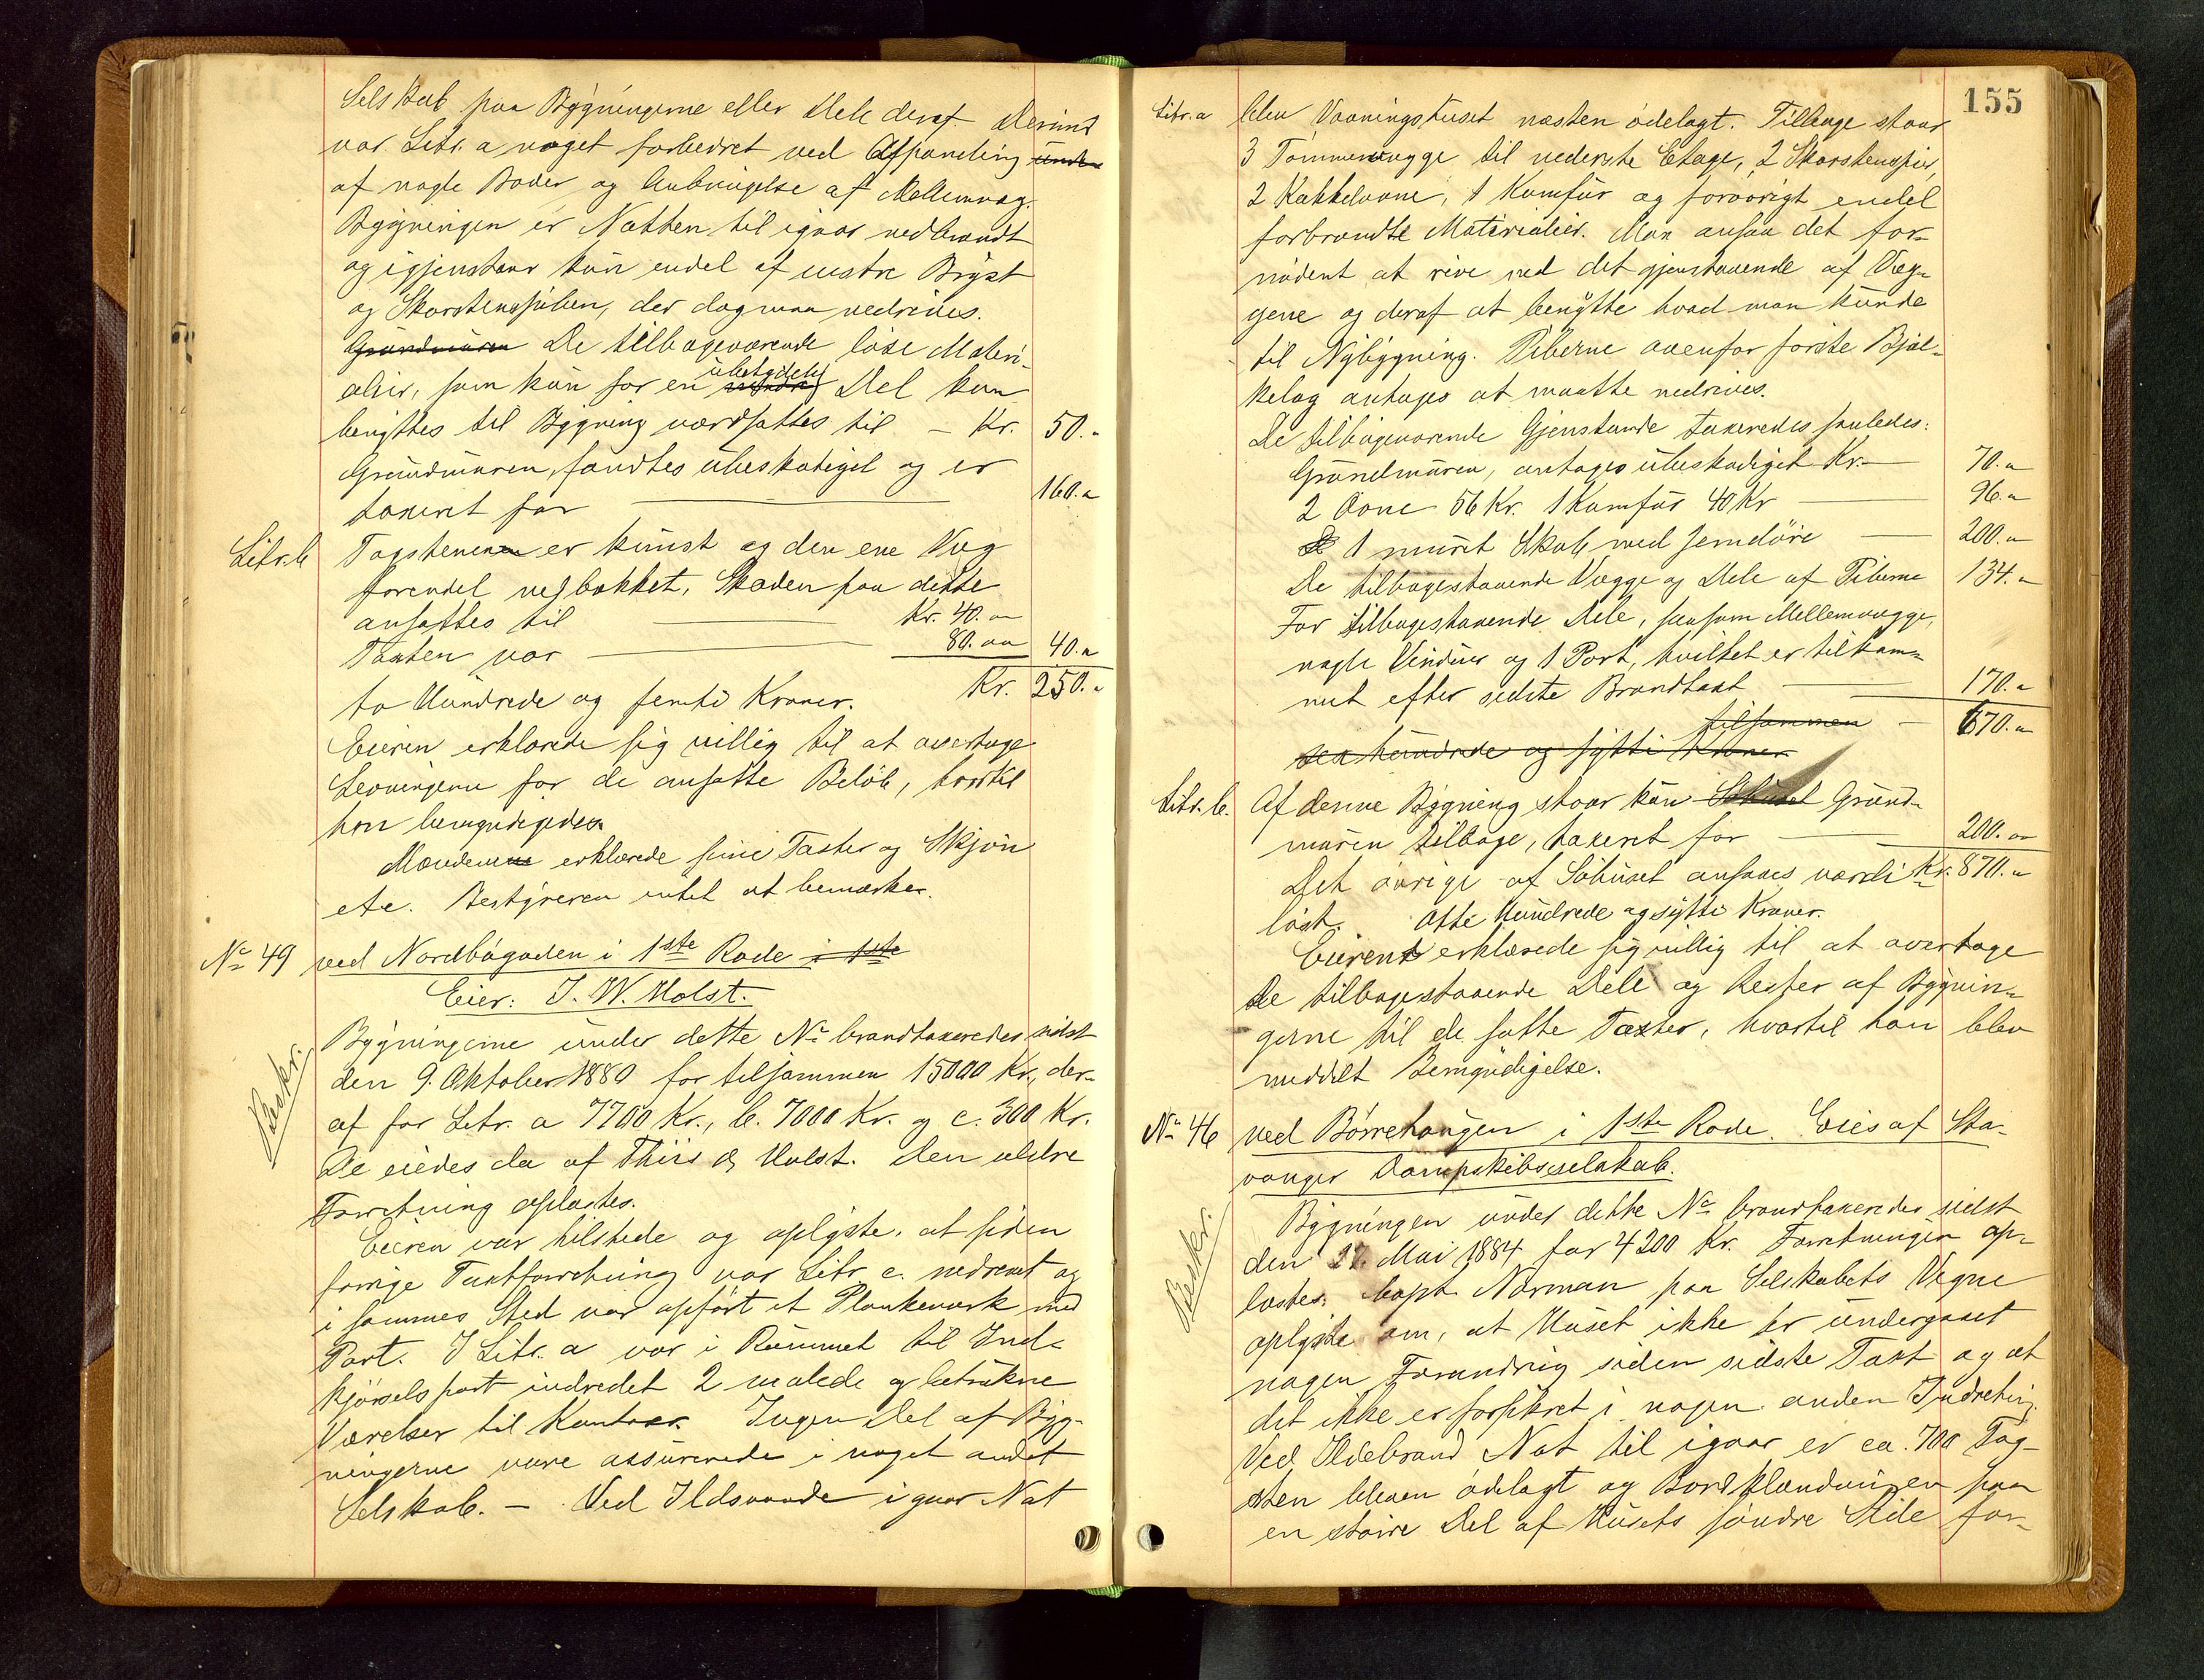 Selskab paa Bygningerne eller Dele deraf. Derimod
var Litr. a noget forbedret ved Afpaneling
af nogle Boder og Anbringelse af Mellemvæg.
Bygningen er Natten til igaar nedbrændt
og igjenstaar kun endel af vestre Bryst
og Skorstenspiben, der dog maa nedrives.
Grundmuren De tilbageværende løse Materi-
alier, som kun for en ubetydelig Del kan
benyttes til Bygning værdsattes til – Kr. 50.-
Grundmuren fandtes ubeskadiget og er
taxeret for 160.-
Litr. b Tagstenene er knust og den ene Væg
forendel nedbakket. Skaden paa dette
ansattes til Kr. 40.-
Taxten var 80.- 40.-
to Hundrede og femti Kroner. Kr. 250.-
Eieren erklærede sig villig til at overtage
Levningerne for de ansatte Beløb, hvortil
han bemyndigedes.
Mændene erklærede sine Taxter og Skjøn
etc. Bestyreren intet at bemærke.
No 49 ved Nordbøgaden i 1ste Rode i 1ste
Eier: J. W. Holst.
Beskr.
Bygningerne under dette No brandtaxeredes sidst
den 9. Oktober 1880 for tilsammen 15000 Kr., der-
af for Litr. a 7700 Kr., b. 7000 Kr. og c. 300 Kr.
De eiedes da af Thiis & Holst. Den ældre
Forretning oplæstes.
Eieren var tilstede og oplyste, at siden
forrige Taxtforretning var Litr c. nedrevet og
i sammes Sted var opført et Plankeværk med
Port. I Litr. a var i Rummet til Ind-
kjørselsport indredet 2 malede og betrukne
Værelser til Kontor. Ingen Del af Byg-
ningerne vare assurerede i noget andet
Selskab. – Ved Ildsvaade igaar Nat
155
Litr. a blev Vaaningshuset næsten ødelagt. Tilbage staar
3 Tømmervægge til nederste Etage, 2 Skorstenspiber,
2 Kakkelovne, 1 Komfur og forøvrigt endel
forbrændte Materialier. Man ansaa det for-
nødent at rive ned det gjenstaaende af Væg-
gene og deraf at benytte hvad man kunde
til Nybygning. Piberne ovenfor første Bjæl-
kelag antages at maatte nedrives.
De tilbageværende Gjenstande taxeredes saaledes:
Grundmuren, antages ubeskadiget Kr. 70.-
2 Ovne 56 Kr. 1 Komfur 40 Kr 96.-
1 muret Skab med Jerndøre 200.-
De tilbagestaaende Vægge og Dele af Piberne 134.-
For tilbagestaaende Dele, saasom Mellemvægge,
nogle Vinduer og 1 Port, hvilket er tilkom-
met efter sidste Brandtaxt 170.-
tilsammen – 670.-
sex hundrede og sytti Kroner
Litr. b. Af denne Bygning staar kun Søhuset Grund-
muren tilbage, taxeret for 200.-
Det øvrige af Søhuset ansaaes værdi- Kr. 870.-
løst. Otte Hundrede og sytti Kroner.
Eieren erklærede sig villig til at overtage
de tilbagestaaende Dele og Rester af Bygnin-
gerne til de satte Taxter, hvortil han blev
meddelt Bemyndigelse.
No 46 ved Børrehaugen i 1ste Rode. Eies af Sta-
vanger Dampskibsselskab.
Beskr.
Bygningen under dette No brandtaxeredes sidst
den 27. Mai 1884 for 4200 Kr. Forretningen op-
læstes. Capt. Norman paa Selskabets Vegne
oplyste om, at Huset ikke er undergaaet
nogen Forandring siden sidste Taxt og at
det ikke er forsikret i nogen anden Indretning.
Ved Ildebrand Nat til igaar er ca. 700 Tag-
sten bleven ødelagt og Bordklædningen paa
en større Del af Husets søndre Side for-